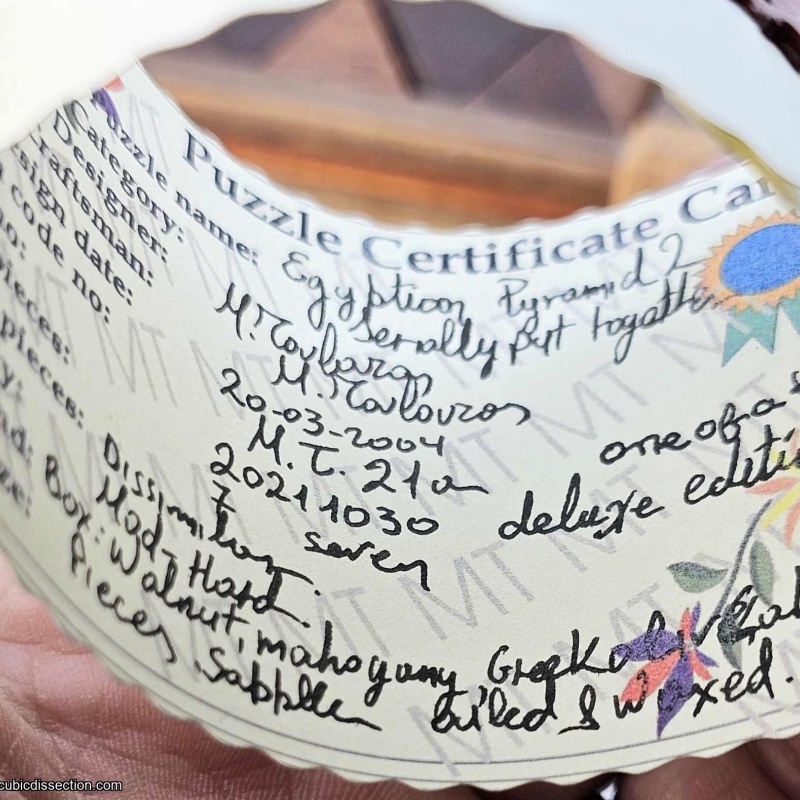 Puzzle Certificate Car
Puzzle name: Egyptian Pyramid 2
Category: Serially put together
Designer: M. Toulouzas
Craftsman: M. Toulouzas
sign date: 20-03-2004
code no: M.T. 21a one of a
no: 20211030 deluxe editi
pieces: 7 seven
pieces: Dissimilar.
Mod-Hard.
Box: Walnut, mahogany, Greek olive,
Pieces: Sapplle oiled & waxed.
MT
cubicdissection.com